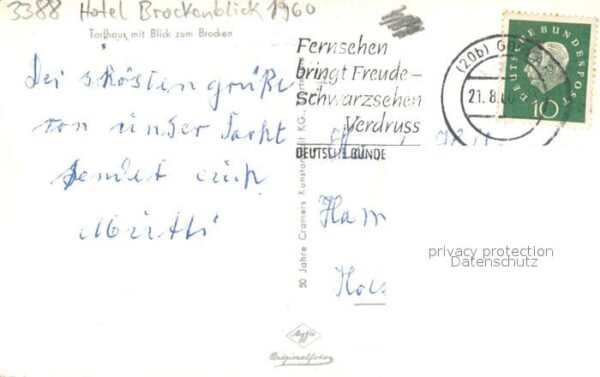 3388 Hotel Brockenblick 1960
Torfhaus mit Blick zum Brocken
grüße
von unser
sendet euch
Mutti
50 Jahre Cramers Kunstanstalt KG.
Agfa
Originalfoto
Fernsehen
bringt Freude-
Schwarzsehen
Verdruss
DEUTSCHE BUNDE
(20b)
21.8.
DEUTSCHE BUNDESPOST
10
Ham
Hols
privacy protection
Datenschutz